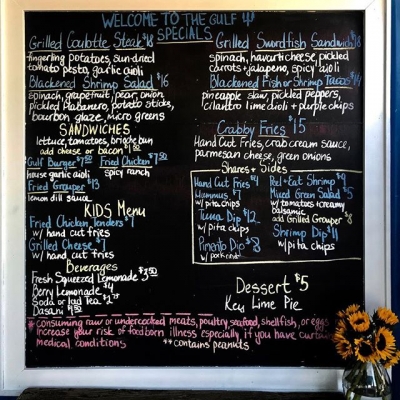 WELCOME TO THE GULF
SPECIALS
Grilled Coulotte Steak $18
fingerling potatoes, sun-dried
tomato pesto, garlic aioli
Blackened Shrimp Salad $16
spinach, grapefruit, pear, onion,
pickled habanero, potato sticks,
bourbon glaze, micro greens
SANDWICHES
lettuce, tomatoes, brioche bun
add cheese or bacon $1.50
Gulf Burger $7.50 Fried Chicken $7.50
house garlic aioli spicy ranch
Fried Grouper $13
lemon dill sauce
KIDS Menu
Fried Chicken Tenders $7
w/ hand cut fries
Grilled Cheese $7
w/ hand cut fries
Beverages
Fresh Squeezed Lemonade $3.50
Berry Lemonade $4
Soda or Iced Tea
Dasani
Grilled Swordfish Sandwich $18
spinach, havarti cheese, pickled
carrots + jalapeno, spicy aioli
Blackened Fish or Shrimp Tacos $14
pineapple slaw, pickled peppers,
cilantro lime aioli + purple chips
Crabby Fries $15
Hand Cut Fries, crab cream sauce,
parmesan cheese, green onions
Shares + Sides
Hand Cut Fries $4
Hummus $7
w/ pita chips
Tuna Dip $12
w/ pita chips
Pimento Dip $8
w/ pork rinds
Peel + Eat Shrimp $9
Mixed Green Salad $5
w/ tomatoes + creamy
balsamic
add Grilled Grouper $8
Shrimp Dip $11
w/ pita chips
Dessert $5
Key Lime Pie
*consuming raw or undercooked meats, poultry, seafood, shellfish, or eggs
increase your risk of foodborn illness especially if you have curtain
medical conditions **contains peanuts